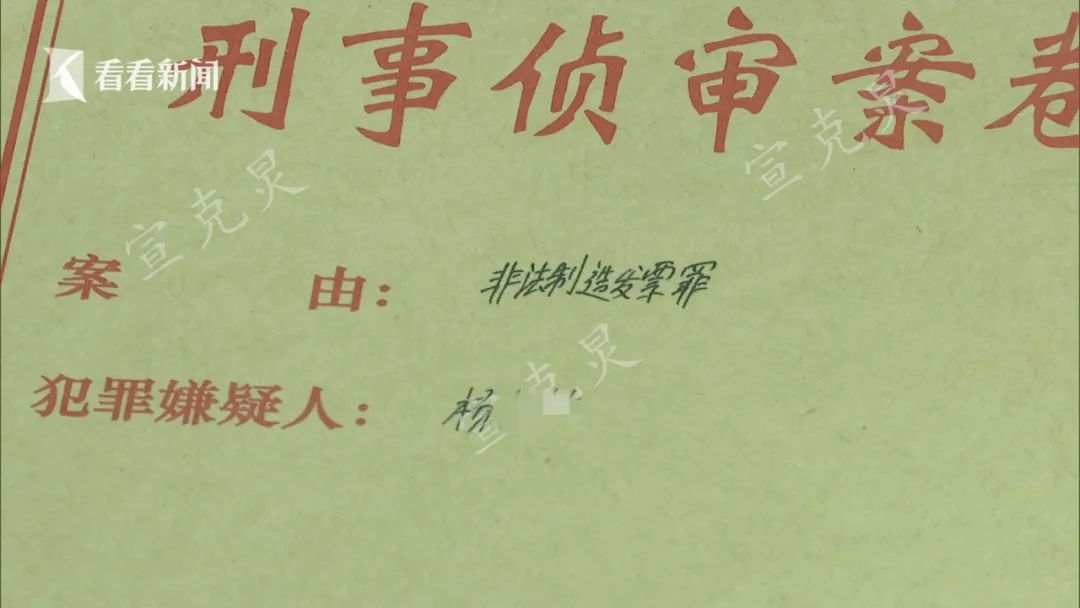 看看新闻
刑事侦审案卷
宣克炅
宣克炅
案由：非法制造发票罪
宣克炅
犯罪嫌疑人：杨